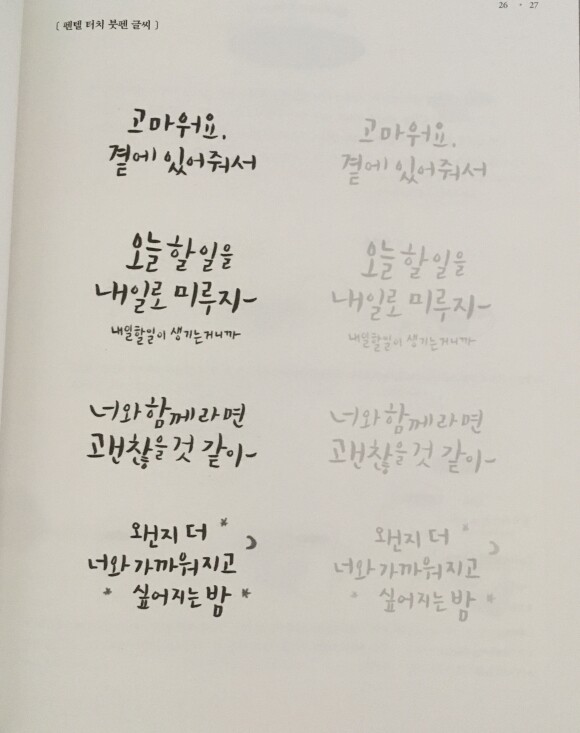 26 · 27
[ 펜텔 터치 붓펜 글씨 ]
고마워요.
곁에 있어줘서
고마워요.
곁에 있어줘서
오늘 할 일을
내일로 미루지~
내일할일이 생기는거니까
오늘 할 일을
내일로 미루지~
내일할일이 생기는거니까
너와 함께라면
괜찮을것 같아~
너와 함께라면
괜찮을것 같아~
왠지 더
너와 가까워지고
싶어지는 밤
왠지 더
너와 가까워지고
싶어지는 밤